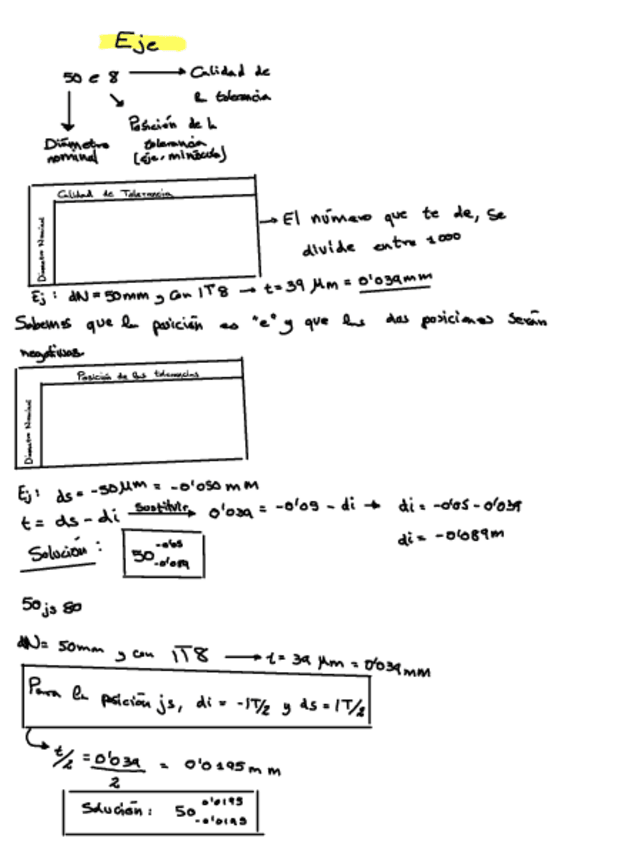 Eje
50 e 8 → Calidad de
la tolerancia
Diámetro
nominal
Posición de la
tolerancia
(eje, minúscula)
Calidad de Tolerancia
Diámetro Nominal
→ El número que te de, se
divide entre 1000
Ej: dN = 50mm y con IT8 → t = 39 μm = 0'039mm
Sabemos que la posición es "e" y que las dos posiciones serán
negativas.
Posición de las tolerancias
Diámetro Nominal
Ej: ds = -50μm = -0'050 mm
t = ds - di sustituir → 0'039 = -0'05 - di → di = -0'05 - 0'039
di = -0'089m
Solución: 50 -0'05 -0'089
50 js 80
dN = 50mm y con IT8 → t = 39 μm = 0'039mm
Para la posición js, di = -IT/2 y ds = IT/2
t/2 = 0'039/2 = 0'0195 mm
Solución: 50 0'0195 -0'0195